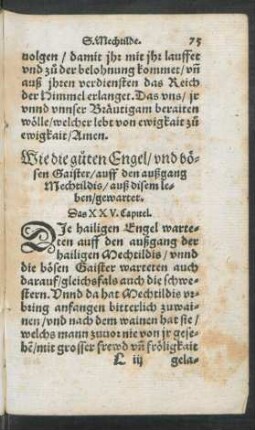 S. Mechtilde. 75
volgen / damit jhr mit jhr lauffet
vnd zů der belohnung kommet / vñ
auß jhren verdiensten das Reich
der Himmel erlanget. Das vns / jr
vnnd vnnser Bräutigam beraiten
wölle / welcher lebt von ewigkait zů
ewigkait / Amen.
Wie die gůten Engel / vnd bö-
sen Gaister / auff den außgang
Mechtildis / auß disem le-
ben / gewartet.
Das XXV. Capitel.
DIe hailigen Engel warte-
ten auff den außgang der
hailigen Mechtildis / vnnd
die bösen Gaister warteten auch
darauf / gleichsfals auch die schwe-
stern. Vnnd da hat Mechtildis vr-
bring anfangen bitterlich zuwai-
nen / vnd nach dem wainen hat sie /
welchs mann zuuor nie von jr gese-
hẽ / mit grosser frewd vñ fröligkait
L iij gela-